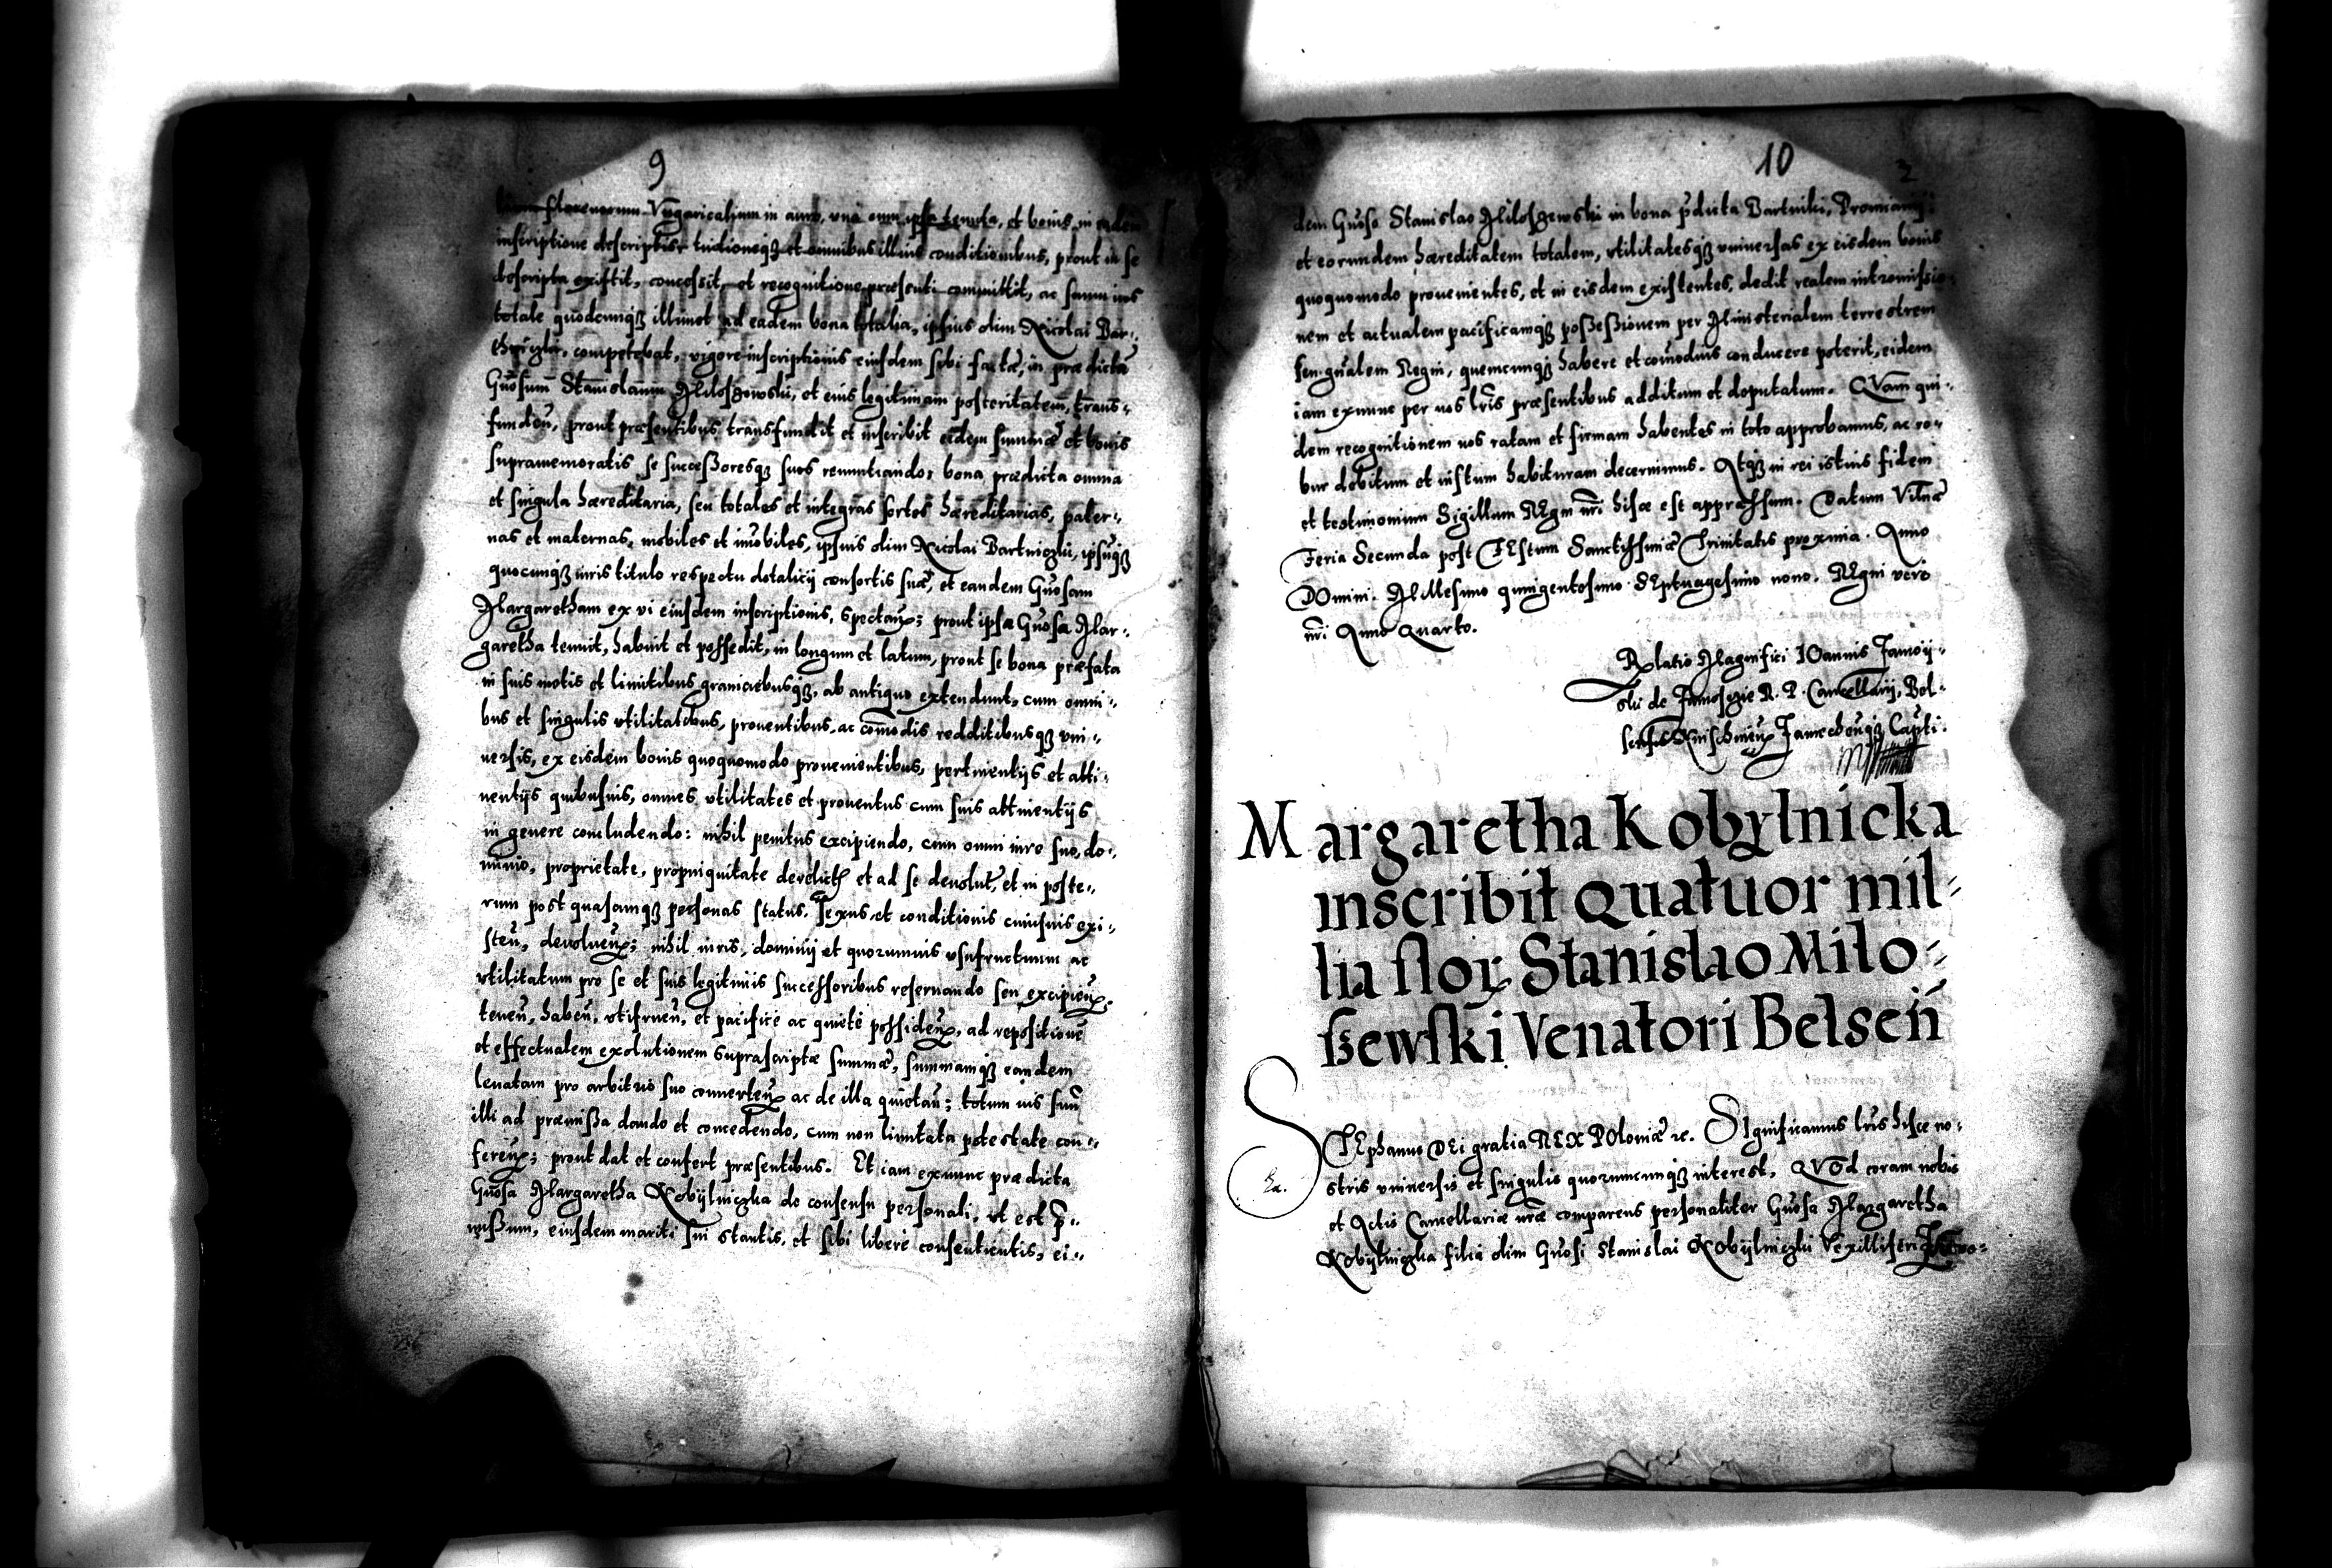 9
florenorum Vngaricalium in auro, vna cum ipsa tenuta, et bonis in eadem
inscriptione descriptis, tuitioneq3 et omnibus illius conditionibus, prout in se
descripta existit, concessit, et recognitione præsenti committit, ac summ ius
totale quodcunq3 illi et ad eadem bona totalia, ipsius olim Nicolai Bar-
competebat, vigore inscriptionis eiusdem sibi factæ, in prædictũ
Gñosum Stanislaum Miloszowski, et eius legitimam posteritatem, trans-
fundeñ, prout præsentibus transfundit et inscribit eidem summæ et bonis
supramemoratis, se successoresq3 suos renuntiando, bona prædicta omnia
et singula hæreditaria, seu totales et integras sortes hæreditarias, pater-
nas et maternas, mobiles et im̃obiles, ipsius olim Nicolai Bartniczki, ipsũq3
quocunq3 iuris titulo respectu dotalicij consortis suæ, et eandem Gñosam
Margaretham ex vi eiusdem inscriptionis, spectañ; prout ipsa Gñosa Mar-
garetha tenuit, habuit et possedit, in longum et latum, prout se bona præfata
in suis metis et limitibus graniciebusq3, ab antiquo extendunt, cum omni-
bus et singulis vtilitatibus, prouentibus, ac com̃odis redditibusq3 vni-
uersis, ex eisdem bonis quoquomodo prouenientibus, pertinentijs et atti-
nentijs quibusuis, omnes vtilitates et prouentus cum suis attinentijs
in genere concludendo: nihil penitus excipiendo, cum omni iure suo, do-
minio, proprietate, propinquitate derelict et ad se deuolut, et in poste-
rum post quasamq3 personas status, sexus et conditionis cuiusuis exi-
steñ, deuolueñ; nihil iuris, dominij et quorumuis vsufructuum ac
vtilitatum pro se et suis legitimis successoribus reseruando seu excipieñ
teneñ, habeñ, vtifrueñ, et pacifice ac quiete possideñ, ad repositionẽ
et effectualem exolutionem suprascriptæ summæ, summamq3 eandem
leuatam pro arbitrio suo conuerteñ ac de illa quietañ; totum ius suũ
illi ad præmissa dando et concedendo, cum non limitata potestate con-
fereñ; prout dat et confert præsentibus. Et iam exnunc prædicta
Gñosa Margaretha Kobÿlniczka de consensu personali, vt est p̃-
missum, eiusdem mariti sui stantis, et sibi libere consentientis, ei-
10
dem Gñoso Stanislao Miloszewski in bona p̃dicta Bartniki,
et eorundem hæreditatem totalem, vtilitatesq3 vniuersas ex eisdem bonis
quoquomodo prouenientes, et in eisdem existentes, dedit realem intromissio-
nem et actualem pacificamq3 possessionem per Ministerialem terrestrem
seu gñalem Regni, quemcunq3 habere et com̃odius conducere poterit, eidem
iam exnunc per nos lr̃is præsentibus additum et deputatum. QVam qui-
dem recognitionem nos ratam et firmam habentes in toto approbamus, ac ro-
bur debitum et iustum habituram decernimus. Atq3 in rei istius fidem
et testimonium Sigillum REgni nr̃i hisce est appressum. Datum Vilnæ
Feria Secunda post FEstum Sanctissimæ Trinitatis proxima. Anno
DOmini. Millesimo quingentesimo SEptuagesimo nono. REgni vero
nr̃i Anno Quarto.
Relatio Magnifici IOannis Zamoij-
ski de Zamosczie R. P. Cancellarij, Bel-
sensis Knischineñ Zamecheñq3 Capti.
Margaretha Kobylnicka
inscribit Quatuor mil-
lia flor Stanislao Milo-
szewski Venatori Belseń
STEphanus DEi gratia REX POloniæ rc. SIgnificamus lr̃is hisce no-
stris vniuersis et singulis quorumcunq3 interest, QVOd coram nobis
et Actis Cancellariæ nr̃æ comparens personaliter Gñosa Margaretha
Kobijlniczka filia olim Gñosi Stanislai Kobijlniczki Vexilliferi